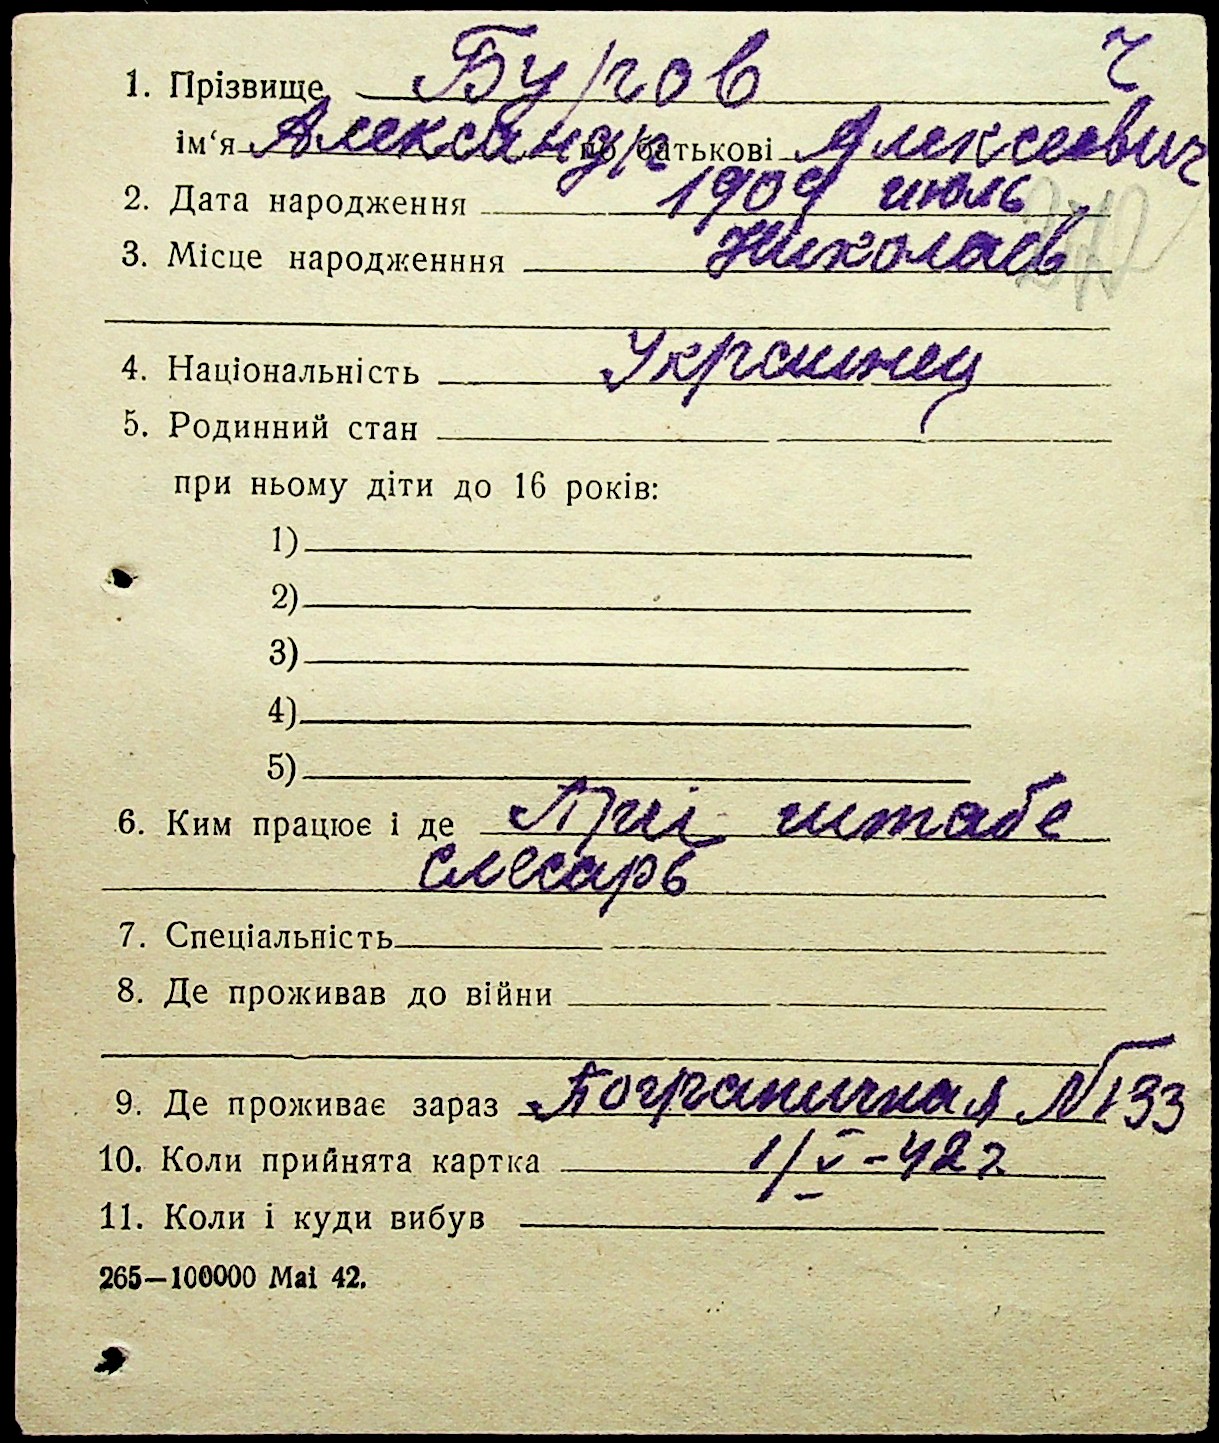 Ч
1. Прізвище Буров
ім‘я Александр по батькові Алексеевич
2. Дата народження 1909 июль
3. Місце народженння Николаев
4. Національність Украинец
5. Родинний стан
при ньому діти до 16 років:
1)
2)
3)
4)
5)
6. Ким працює і де При штабе
слесарь
7. Спеціальність
8. Де проживав до війни
9. Де проживає зараз Пограничная №133
10. Коли прийнята картка 1/V-42 г
11. Коли і куди вибув
265—100000 Mai 42.